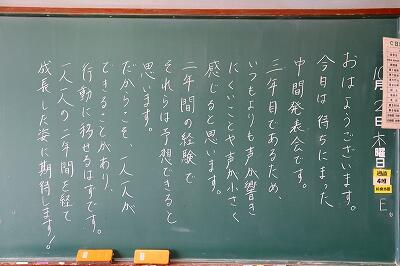 10月2日木曜日
おはようございます。
今日は待ちにまった
中間発表会です。
三年目であるため、
いつもよりも声が響き
にくいことや声が小さく
感じると思います。
二年間の経験で
それらは予想できると
思います。
だからこそ、一人一人が
できることがあり、
行動に移せるはずです。
一人一人の二年間を経て
成長した姿に期待します!